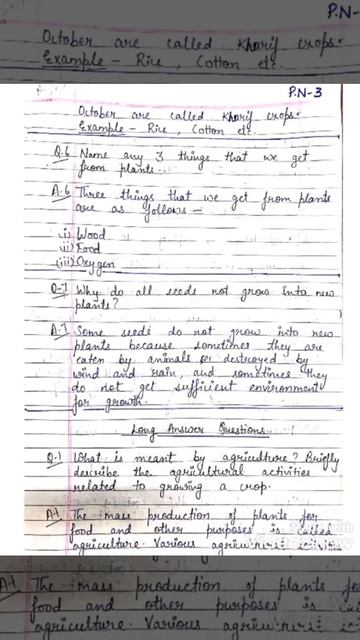 P.N-
October are called Kharif crops.
Example - Rice, Cotton etc.
P.N-3
October are called Kharif crops.
Example - Rice, Cotton etc.
Q.6 Name any 3 things that we get
from plants.
A.6 Three things that we get from plants
are as follows -
(i) Wood
(ii) Food
(iii) Oxygen
Q-7 Why do all seeds not grow into new
plants?
A.7 Some seeds do not grow into new
plants because sometimes they are
eaten by animals or destroyed by
wind and rain, and sometimes they
do not get sufficient environment
for growth.
Long Answer Questions.
Q.1 What is meant by agriculture? Briefly
describe the agricultural activities
related to growing a crop.
A.1 The mass production of plants for
food and other purposes is called
agriculture. Various
A.1 The mass production of plants fo
food and other purposes is ca
agriculture. Various